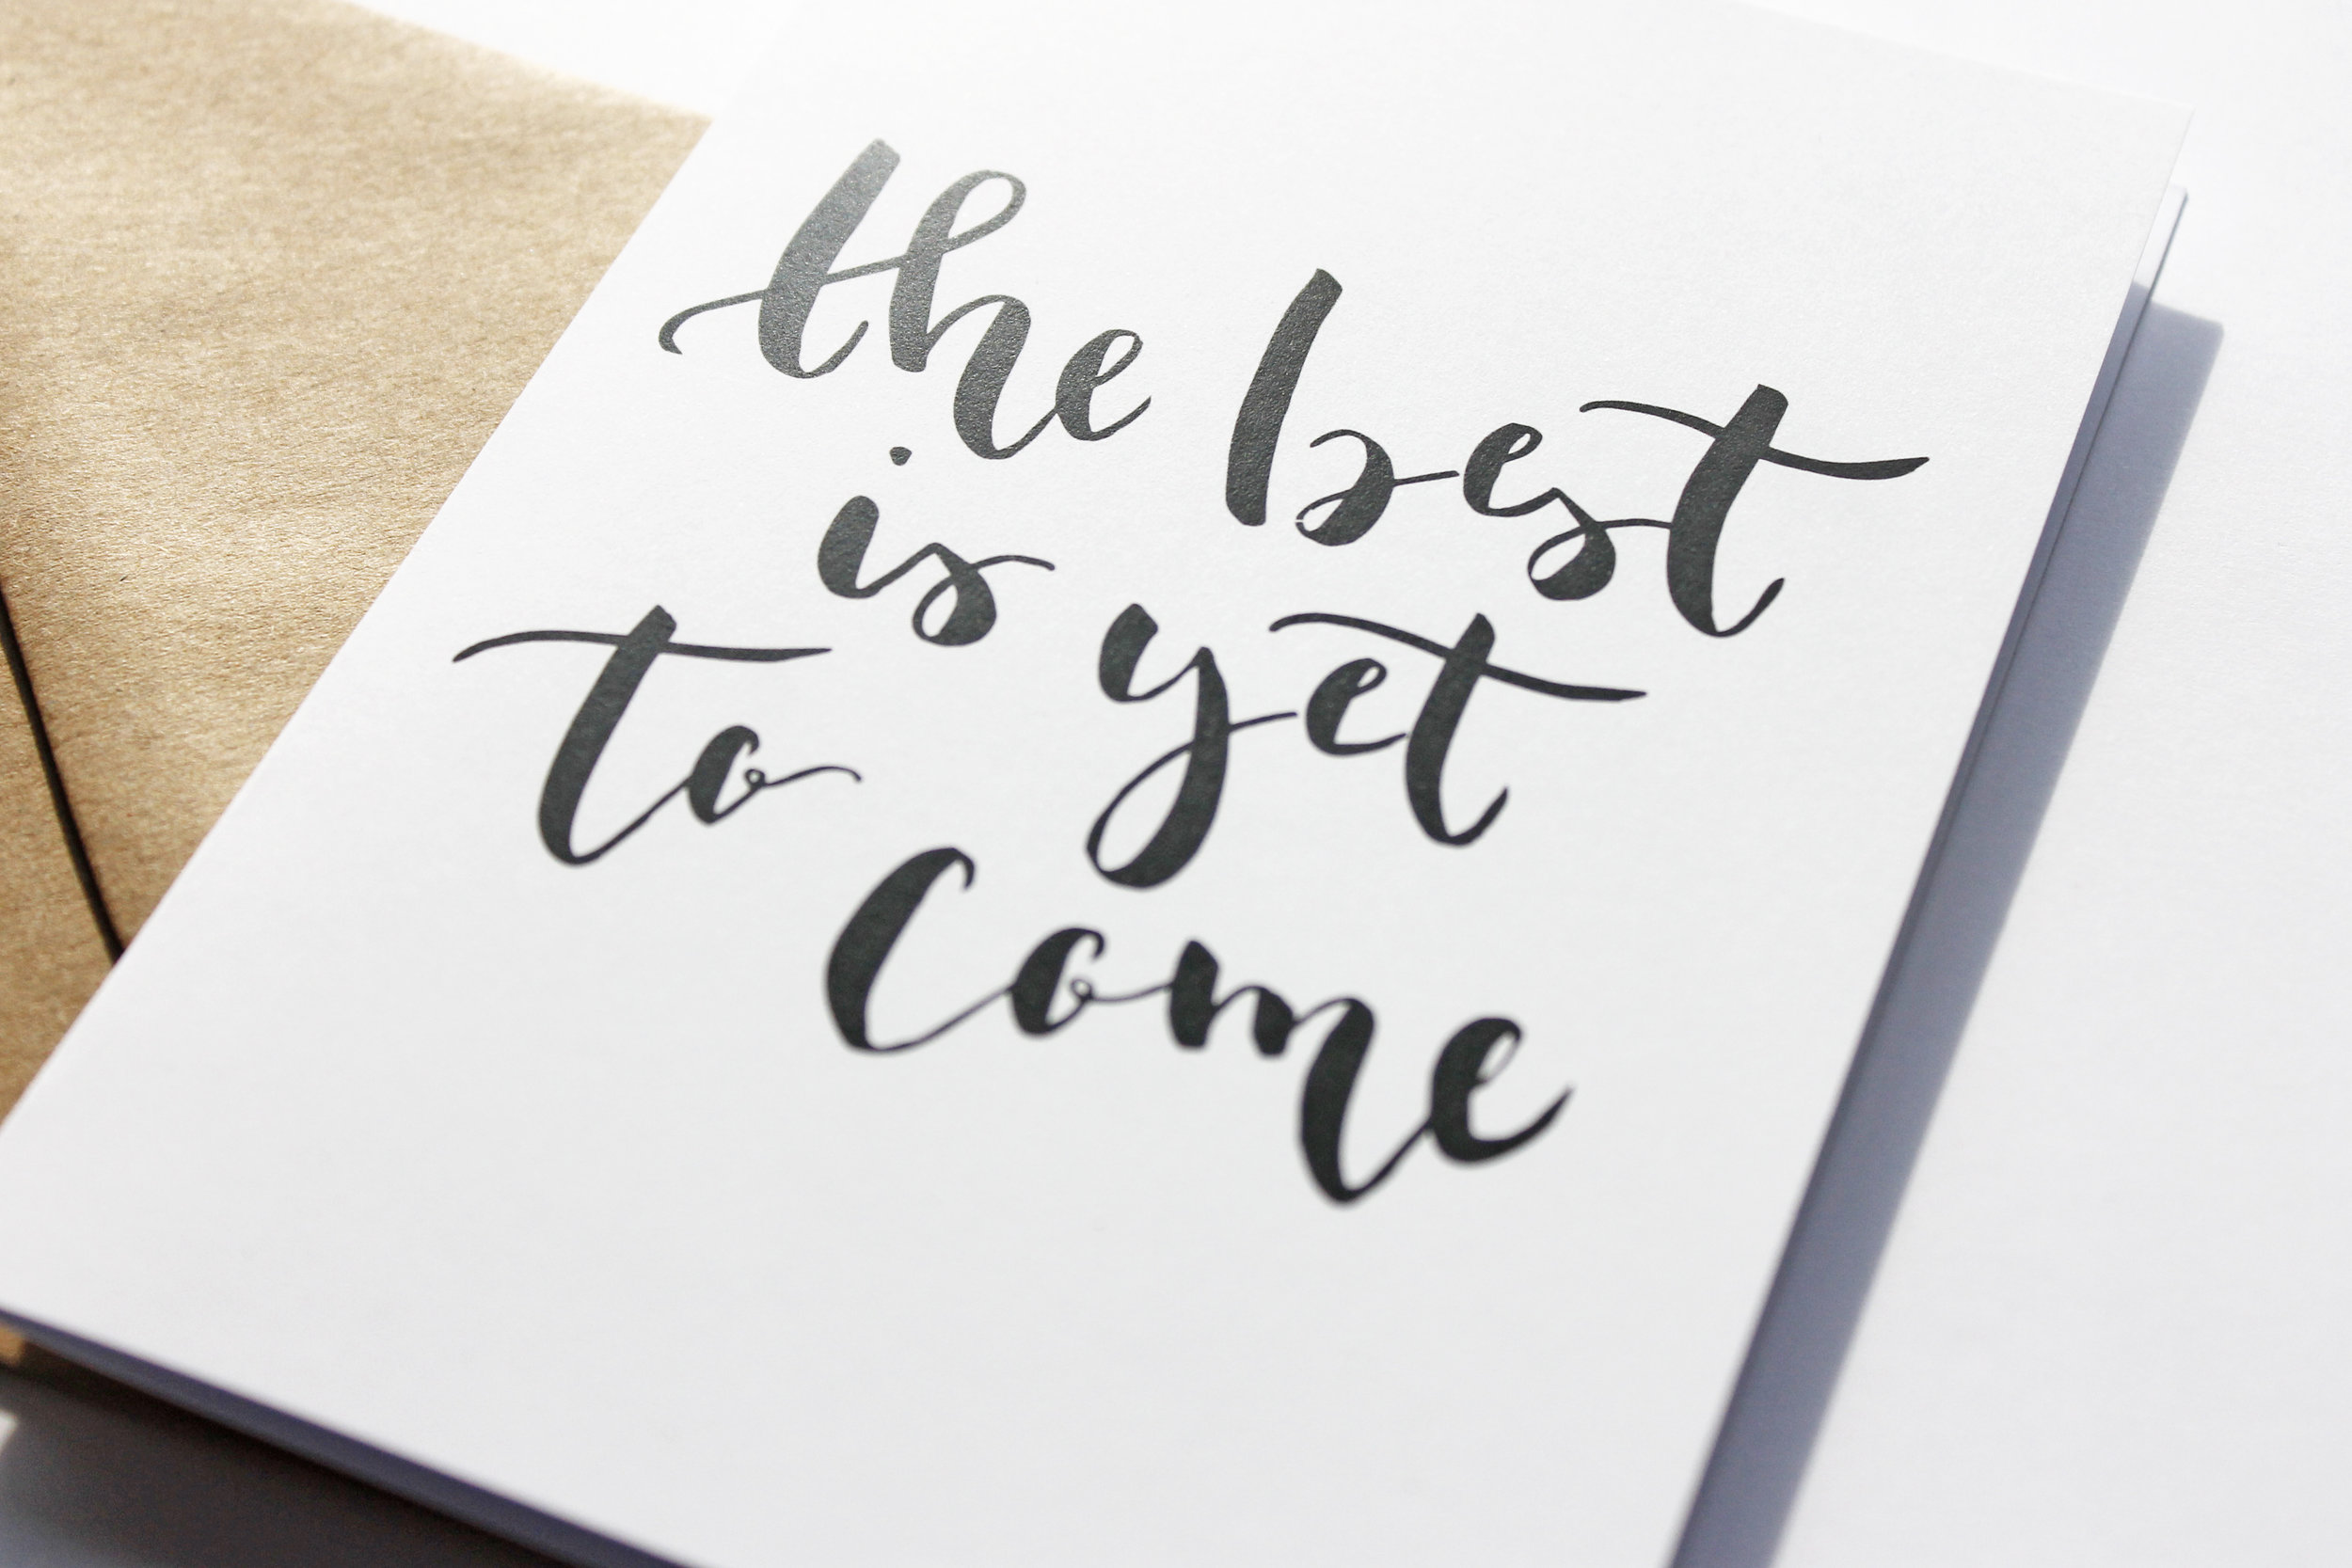 the best
is yet
to
come